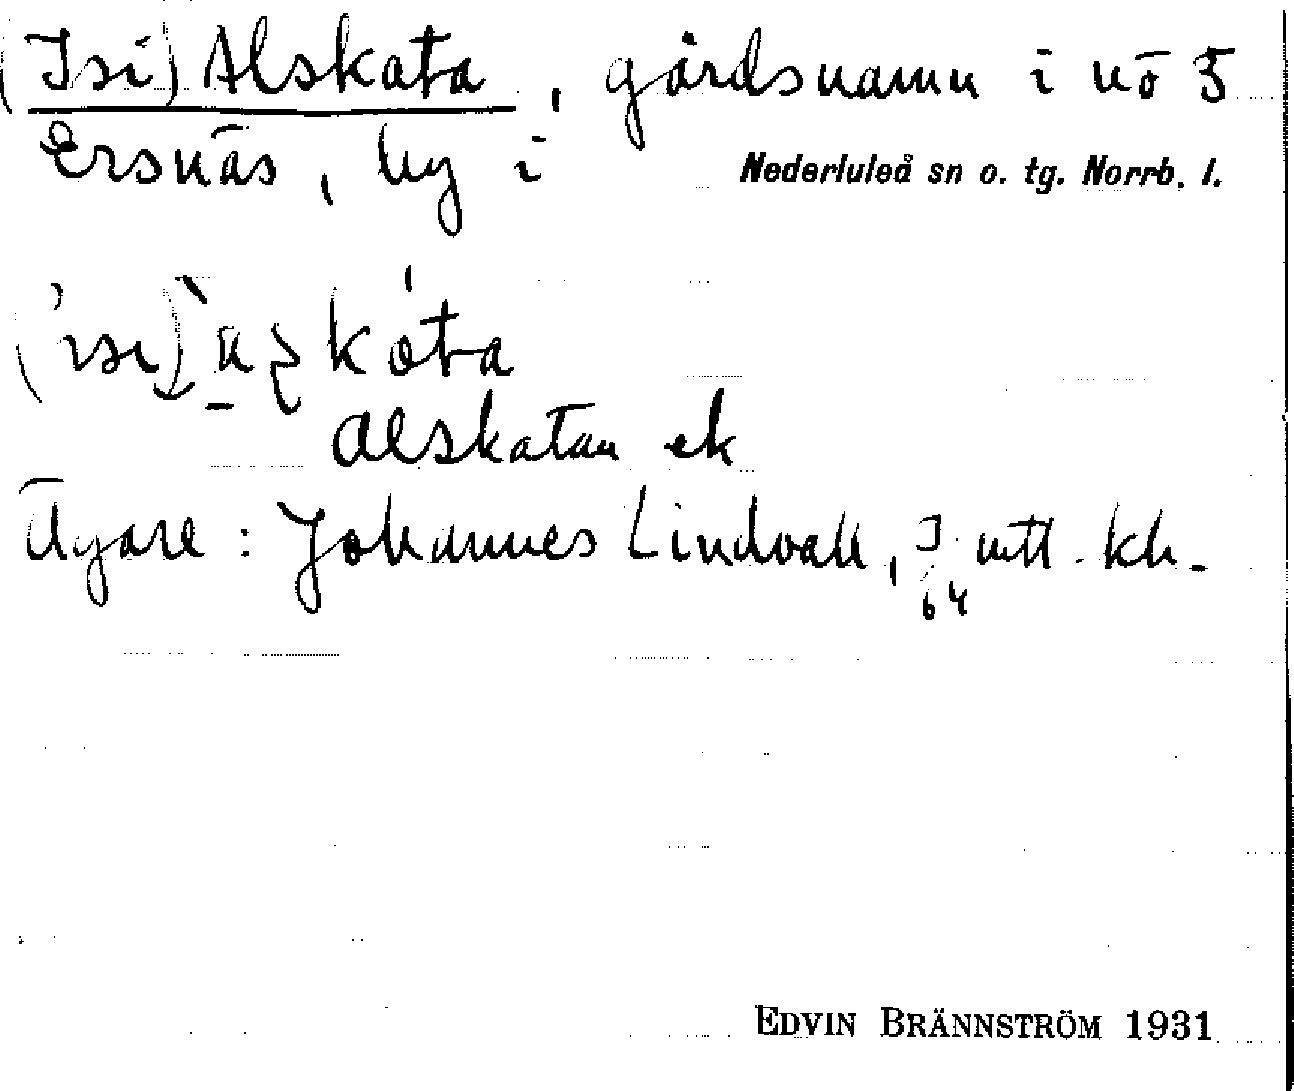 (Isi) Alskata, gårdsnamn i nō 5
Ersnäs, by i Nederluleå sn o. tg. Norrb. l.
Alskatan ek
Ägare: Johannes Lindvall, I mtl. kh.
64
EDVIN BRÄNNSTRÖM 1931